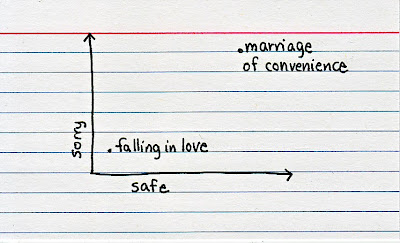 marriage
of convenience
sorry
falling in love
safe